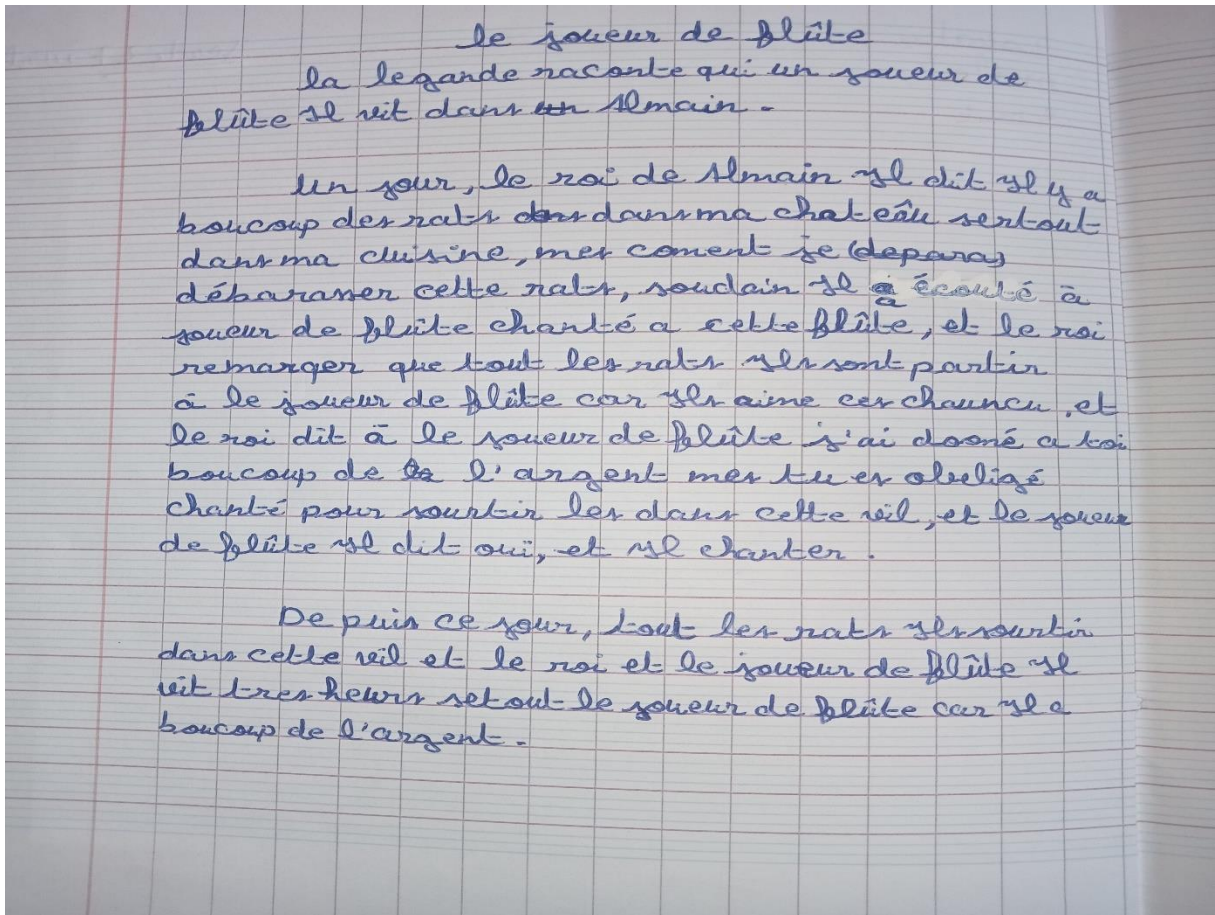 le joueur de flûte
la legande raconte qui un joueur de
flûte il vit dans un Almain.
un jour, le roi de Almain il dit il y a
boucoup des rats dans ma chateâu sertout
dans ma cuisine, mes coment je (depara)
débarasser cette rats, soudain il a écouté à
joueur de flûte chanté a cette flûte, et le roi
remarger que tout les rats ils sont partir
à le joueur de flûte car ils aime ces chauncu, et
le roi dit à le joueur de flûte j'ai dooné a toi
boucoup de l'argent mes tu es obeligé
chanté pour sourtir les dans cette vil, et le joueur
de flûte il dit oui, et il chanter.
De puis ce jour, tout les rats ils sourtir
dans cette vil et le roi et le joueur de flûte il
vit tres heurs setout le joueur de flûte car il a
boucoup de l'argent.